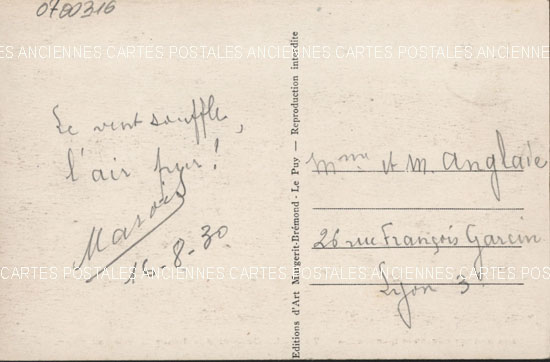 0780316
CARTES POSTALES ANCIENNES CARTES POSTALES ANCIENNES CARTES POSTALES
Le vent souffle,
l'air pur !
16-8-30
Editions d'Art Margerit-Brémond - Le Puy — Reproduction interdite
Mme et M. Anglade
26 rue François Garcin
Lyon 3
CARTES POSTALES ANCIENNES CARTES POSTALES ANCIENNES CARTES POSTALES